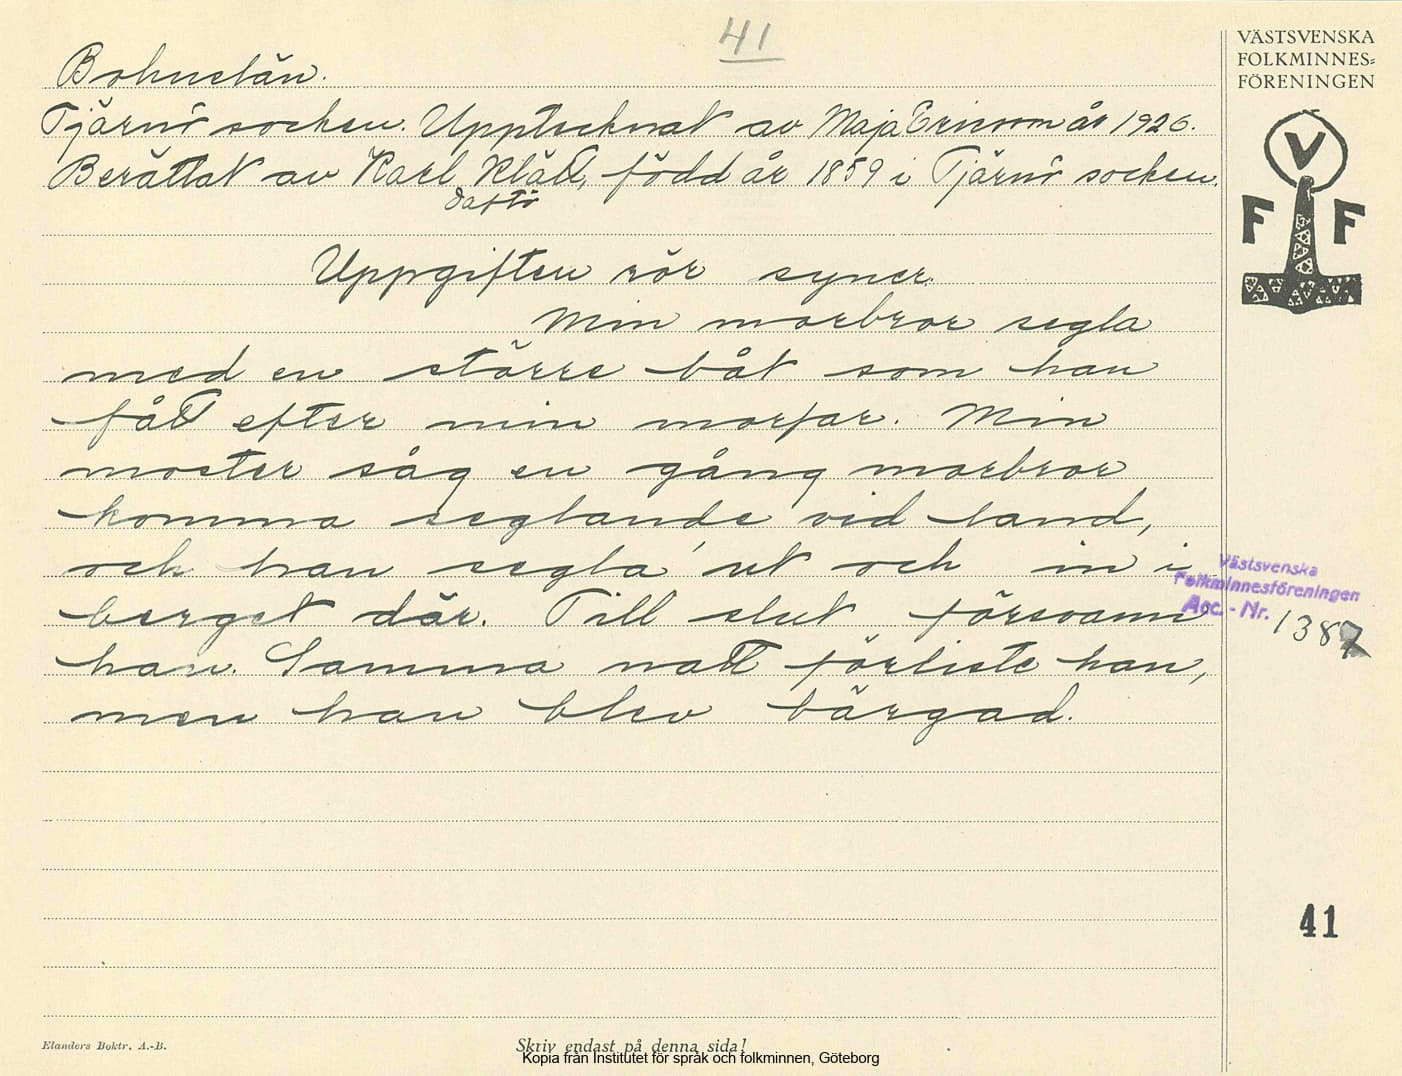 41
VÄSTSVENSKA
FOLKMINNES=
FÖRENINGEN
V
F F
Bohuslän.
Tjärnö socken. Upptecknat av Maja Ericson år 1926.
Berättat av Karl Klätt, född år 1859 i Tjärnö socken.
Daftö
Uppgiften rör syner.
Min morbror segla
med en större båt som han
fått efter min morfar. Min
moster såg en gång morbror
komma seglande vid land,
och han segla ut och in i
berget där. Till slut försvann
han. Samma natt förliste han,
men han blev bärgad.
Västsvenska
Folkminnesföreningen
Acc. - Nr. 1387
41
Elanders Boktr. A.-B.
Skriv endast på denna sida!
Kopia från Institutet för språk och folkminnen, Göteborg